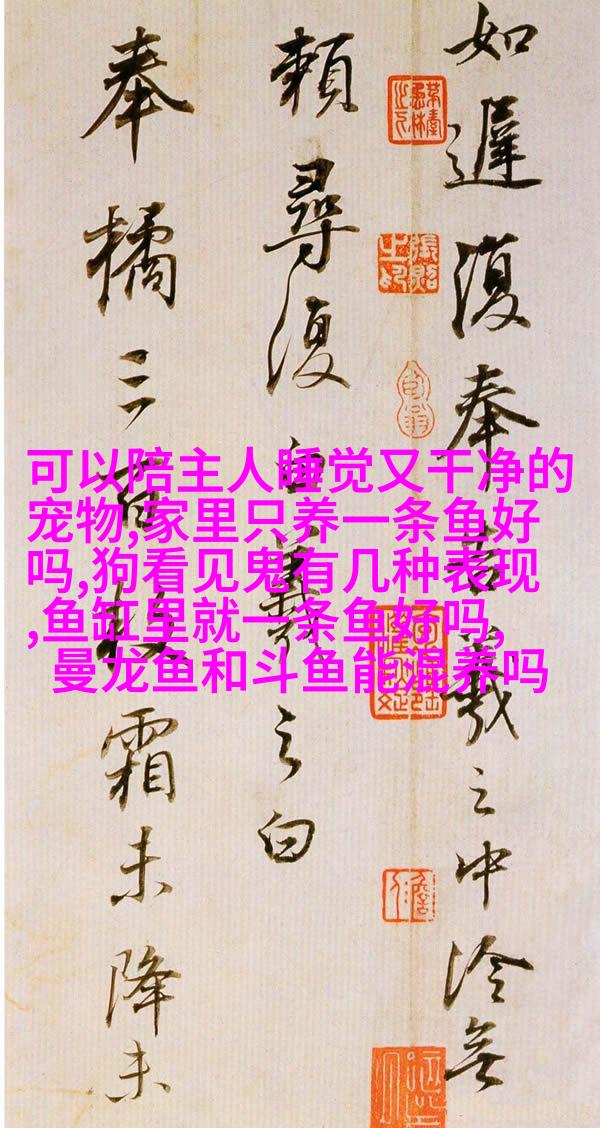 可以陪主人睡觉又干净的
宠物,家里只养一条鱼好
吗,狗看见鬼有几种表现
,鱼缸里就一条鱼好吗,
曼龙鱼和斗鱼能混养吗
如遲復奉告羲之中冷無
賴尋復白羲之白
奉橘三百枚霜未降未